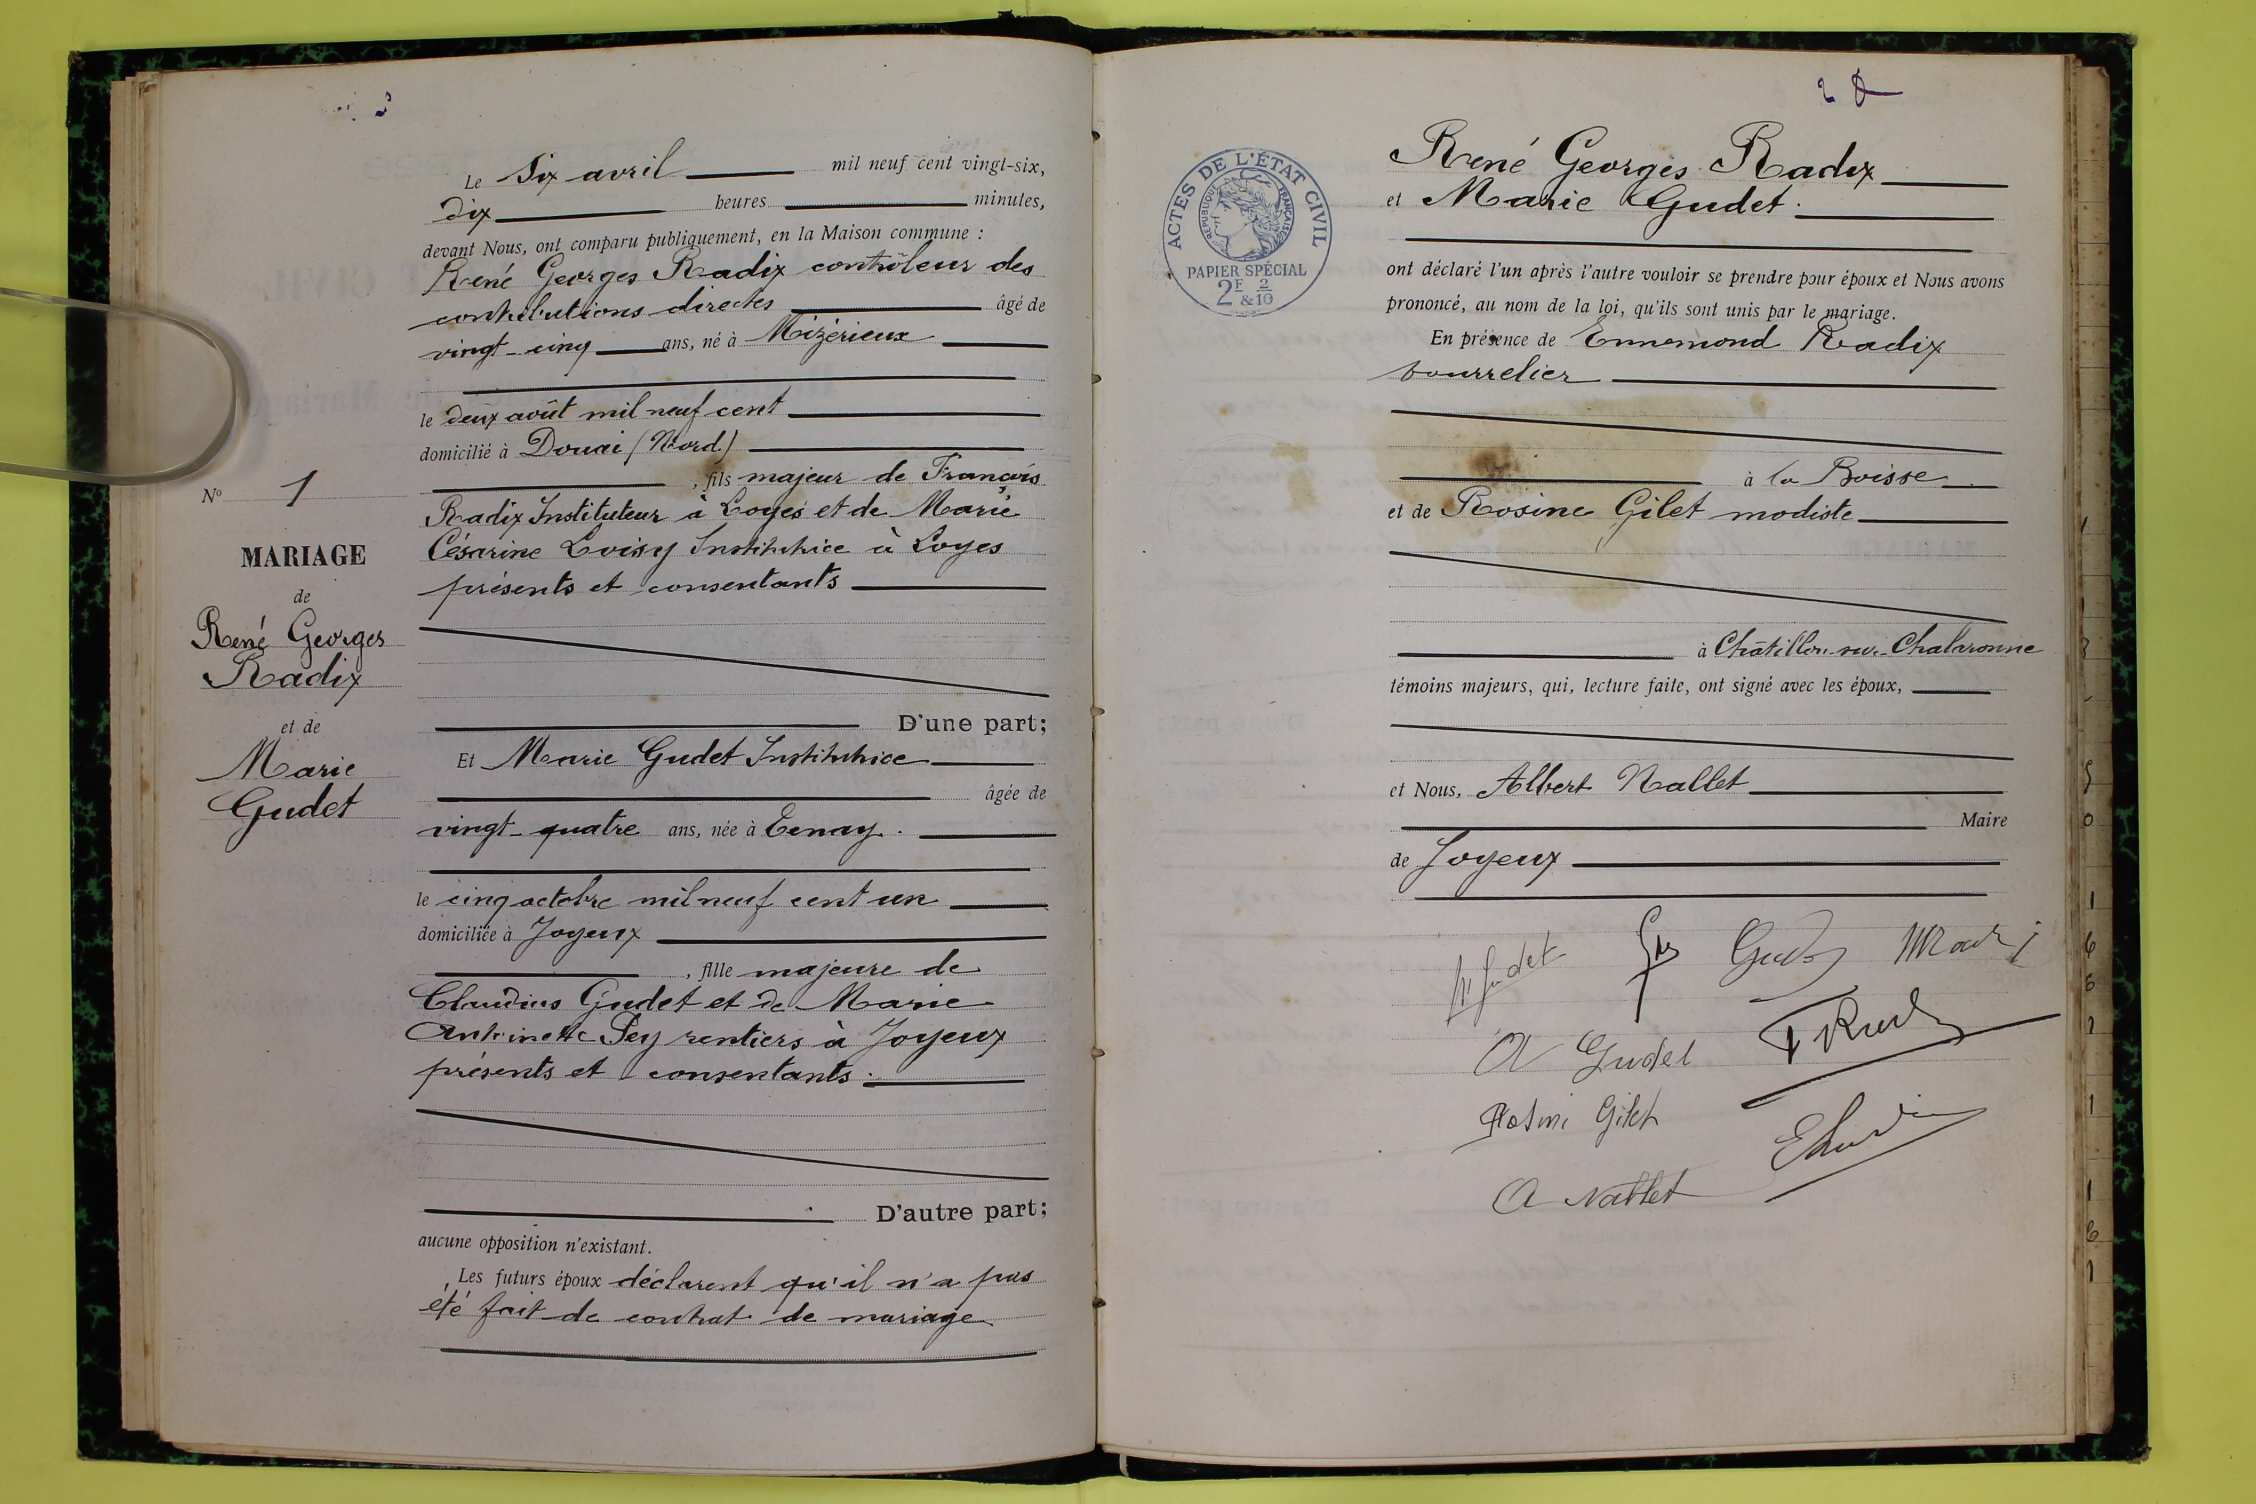 Le Six avril mil neuf cent vingt-six,
dix heures minutes,
devant Nous, ont comparu publiquement, en la Maison commune :
René Georges Radix contrôleur des
contributions directes âgé de
vingt-cinq ans, né à Mizérieux
le deux août mil neuf cent
domicilié à Douai (Nord)
, fils majeur de François
Radix Instituteur à Loyes et de Marie
Césarine Loisy Institutrice à Loyes
présents et consentants
D'une part;
Et Marie Gudet Institutrice
âgée de
vingt-quatre ans, née à Tenay.
le cinq octobre mil neuf cent un
domiciliée à Joyeux
, fille majeure de
Claudius Gudet et de Marie
Antoinette Pey rentiers à Joyeux
présents et consentants.
D'autre part;
aucune opposition n'existant.
Les futurs époux déclarent qu'il n'a pas
été fait de contrat de mariage
N° 1
MARIAGE
de
René Georges
Radix
et de
Marie
Gudet
ACTES DE L'ÉTAT CIVIL
RÉPUBLIQUE FRANÇAISE
PAPIER SPÉCIAL
2F & 2/10
René Georges Radix
et Marie Gudet.
ont déclaré l'un après l'autre vouloir se prendre pour époux et Nous avons
prononcé, au nom de la loi, qu'ils sont unis par le mariage.
En présence de Ennemond Radix
bourrelier
à la Boisse
et de Rosine Gilet modiste
à Châtillon-sur-Chalaronne
témoins majeurs, qui, lecture faite, ont signé avec les époux,
et Nous, Albert Nallet
Maire
de Joyeux
M Gudet
A Gudet
Rosine Gilet
A Nallet